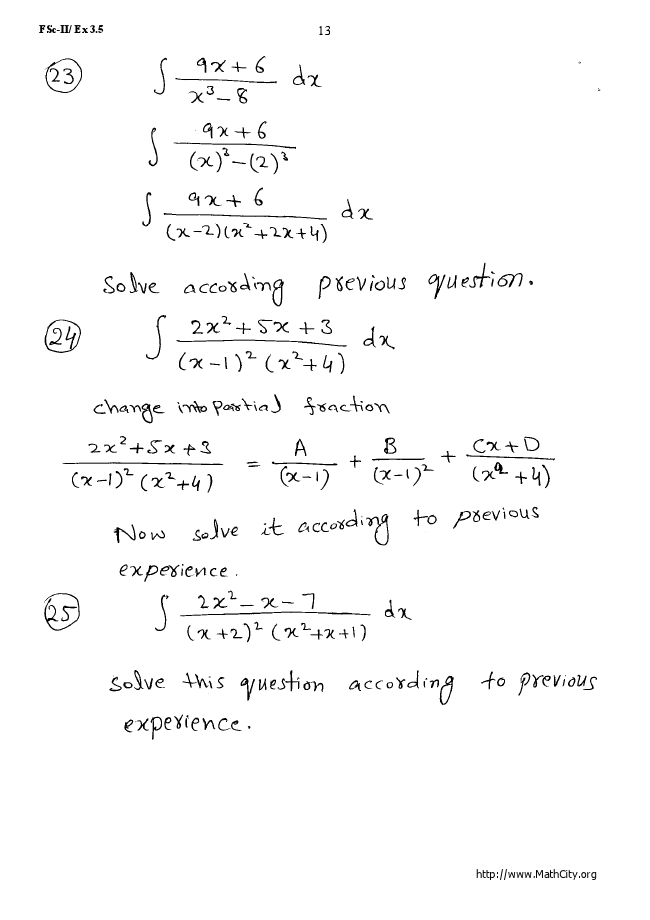 FSc-II/ Ex 3.5
13
(23) ∫ (9x + 6)/(x³ − 8) dx
∫ (9x + 6)/((x)³ − (2)³)
∫ (9x + 6)/((x−2)(x²+2x+4)) dx
Solve according previous question.
(24) ∫ (2x² + 5x + 3)/((x−1)² (x²+4)) dx
change into Partial fraction
(2x²+5x+3)/((x−1)² (x²+4)) = A/(x−1) + B/(x−1)² + (Cx+D)/(x²+4)
Now solve it according to previous
experience.
(25) ∫ (2x² − x − 7)/((x+2)² (x²+x+1)) dx
Solve this question according to previous
experience.
http://www.MathCity.org